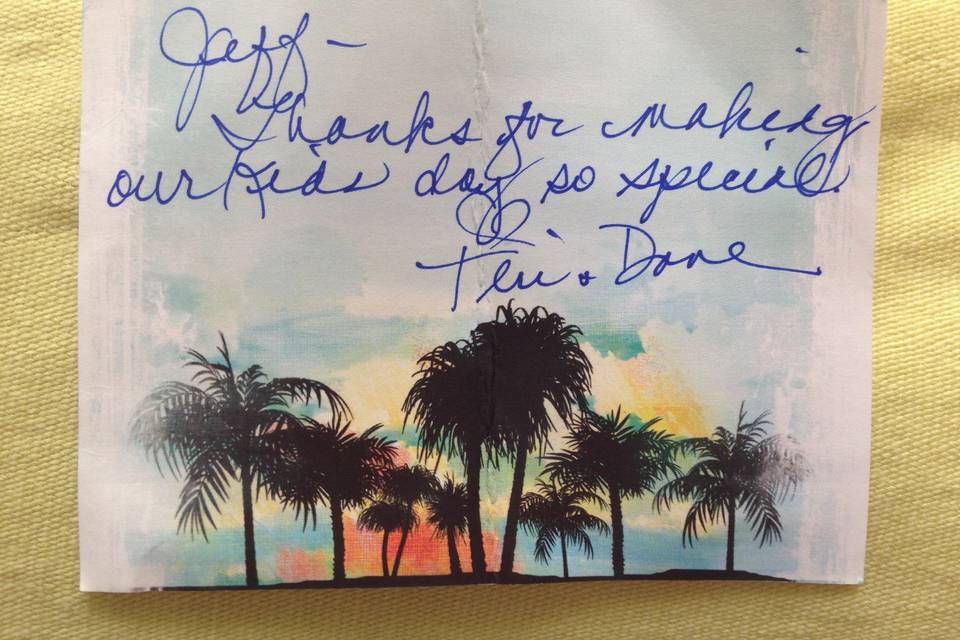 Jeff -
Thanks for making
our Kids day so special.
Teri + Dave